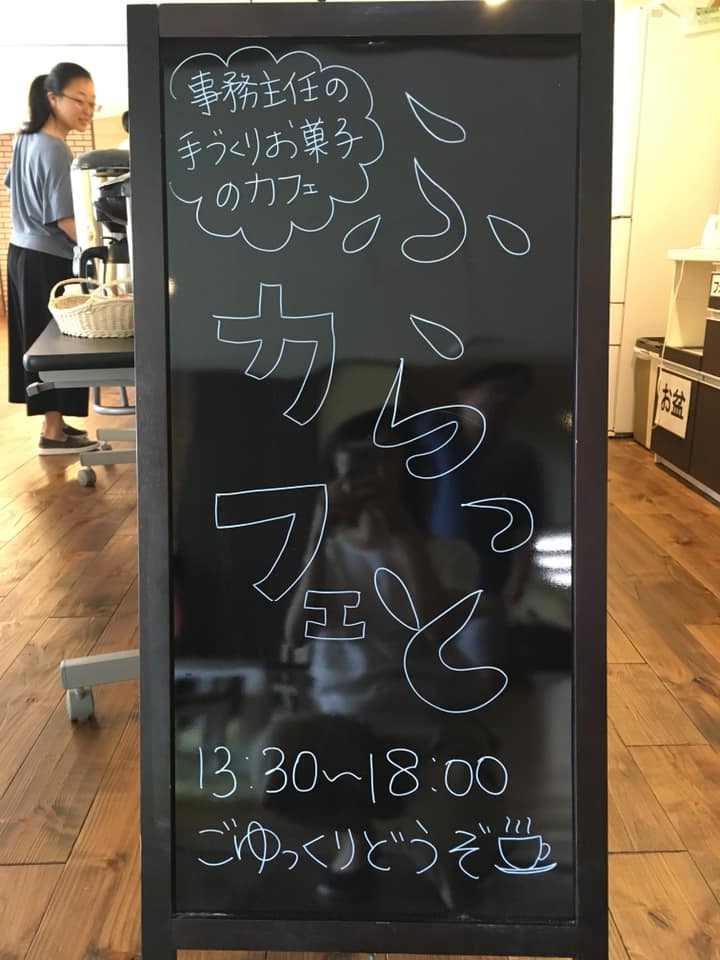 事務主任の
手づくりお菓子
のカフェ
ふらっと
カフェ
13:30〜18:00
ごゆっくりどうぞ
お盆